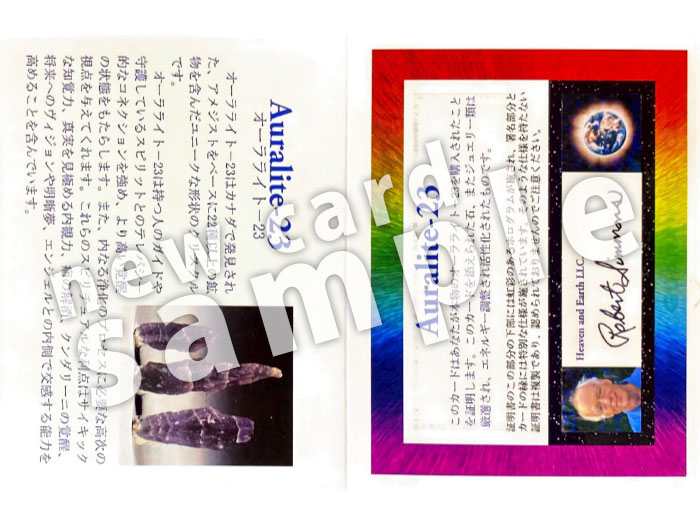 Auralite-23
オーラライト―23
オーラライト―23はカナダで発見され
た、アメジストをベースに22種以上の鉱
物を含んだユニークな形状のクリスタル
です。
オーラライト―23は持つ人のガイドや
守護しているスピリットとのテレパシー
的なコネクションを強め、より高い覚醒
の状態をもたらします。また、内なる浄化のプロセスに必要な高次の
視点を与えてくれます。これらのスピリチュアルな利点はサイキック
な知覚力、真実を見極める内観力、の解消、クンダリーニの覚醒、
将来へのヴィジョンや明晰夢、エンジェルとの内側で交感する能力を
高めることを含んでいます。
Auralite-23
このカードはあなたが本物のオーラライト―23を購入されたこと
を証明します。このカードを添えられた石、またジュエリー類は
厳選され、エネルギー調整され活性化されたものです。
証明書のこの部分の下部には虹彩のあるホログラムが施され、署名部分と
カードの縁には特別な仕様が施されています。そのような仕様を持たない
証明書は複製であり、認められておりませんのでご注意ください。
Heaven and Earth LLC.
Robert Simmons
new card
sample